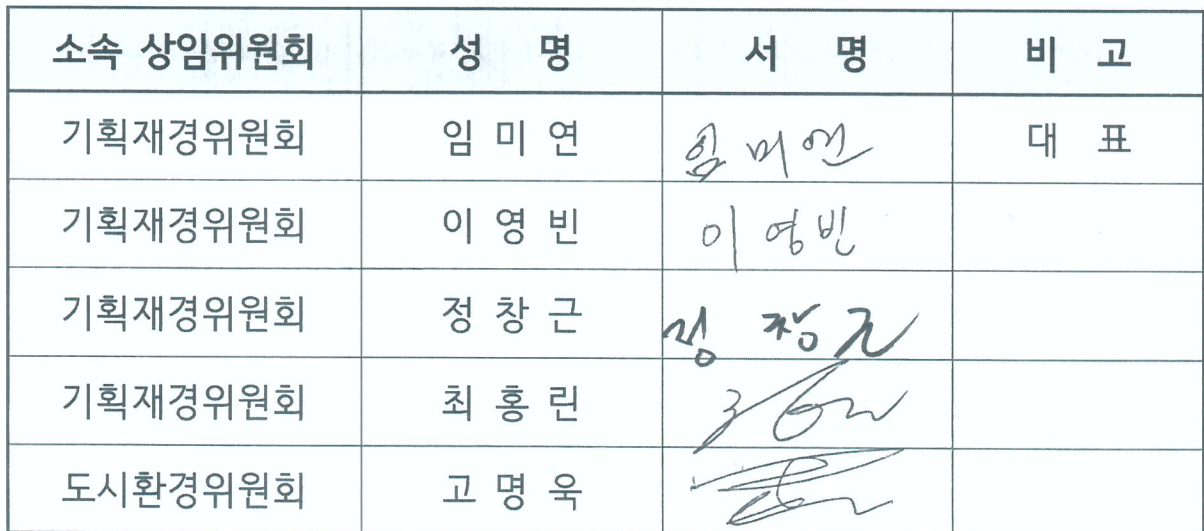 소속 상임위원회 성 명 서 명 비 고
기획재경위원회 임 미 연 임 미 연 대 표
기획재경위원회 이 영 빈 이 영 빈
기획재경위원회 정 창 근 정 창 근
기획재경위원회 최 홍 린
도시환경위원회 고 명 욱